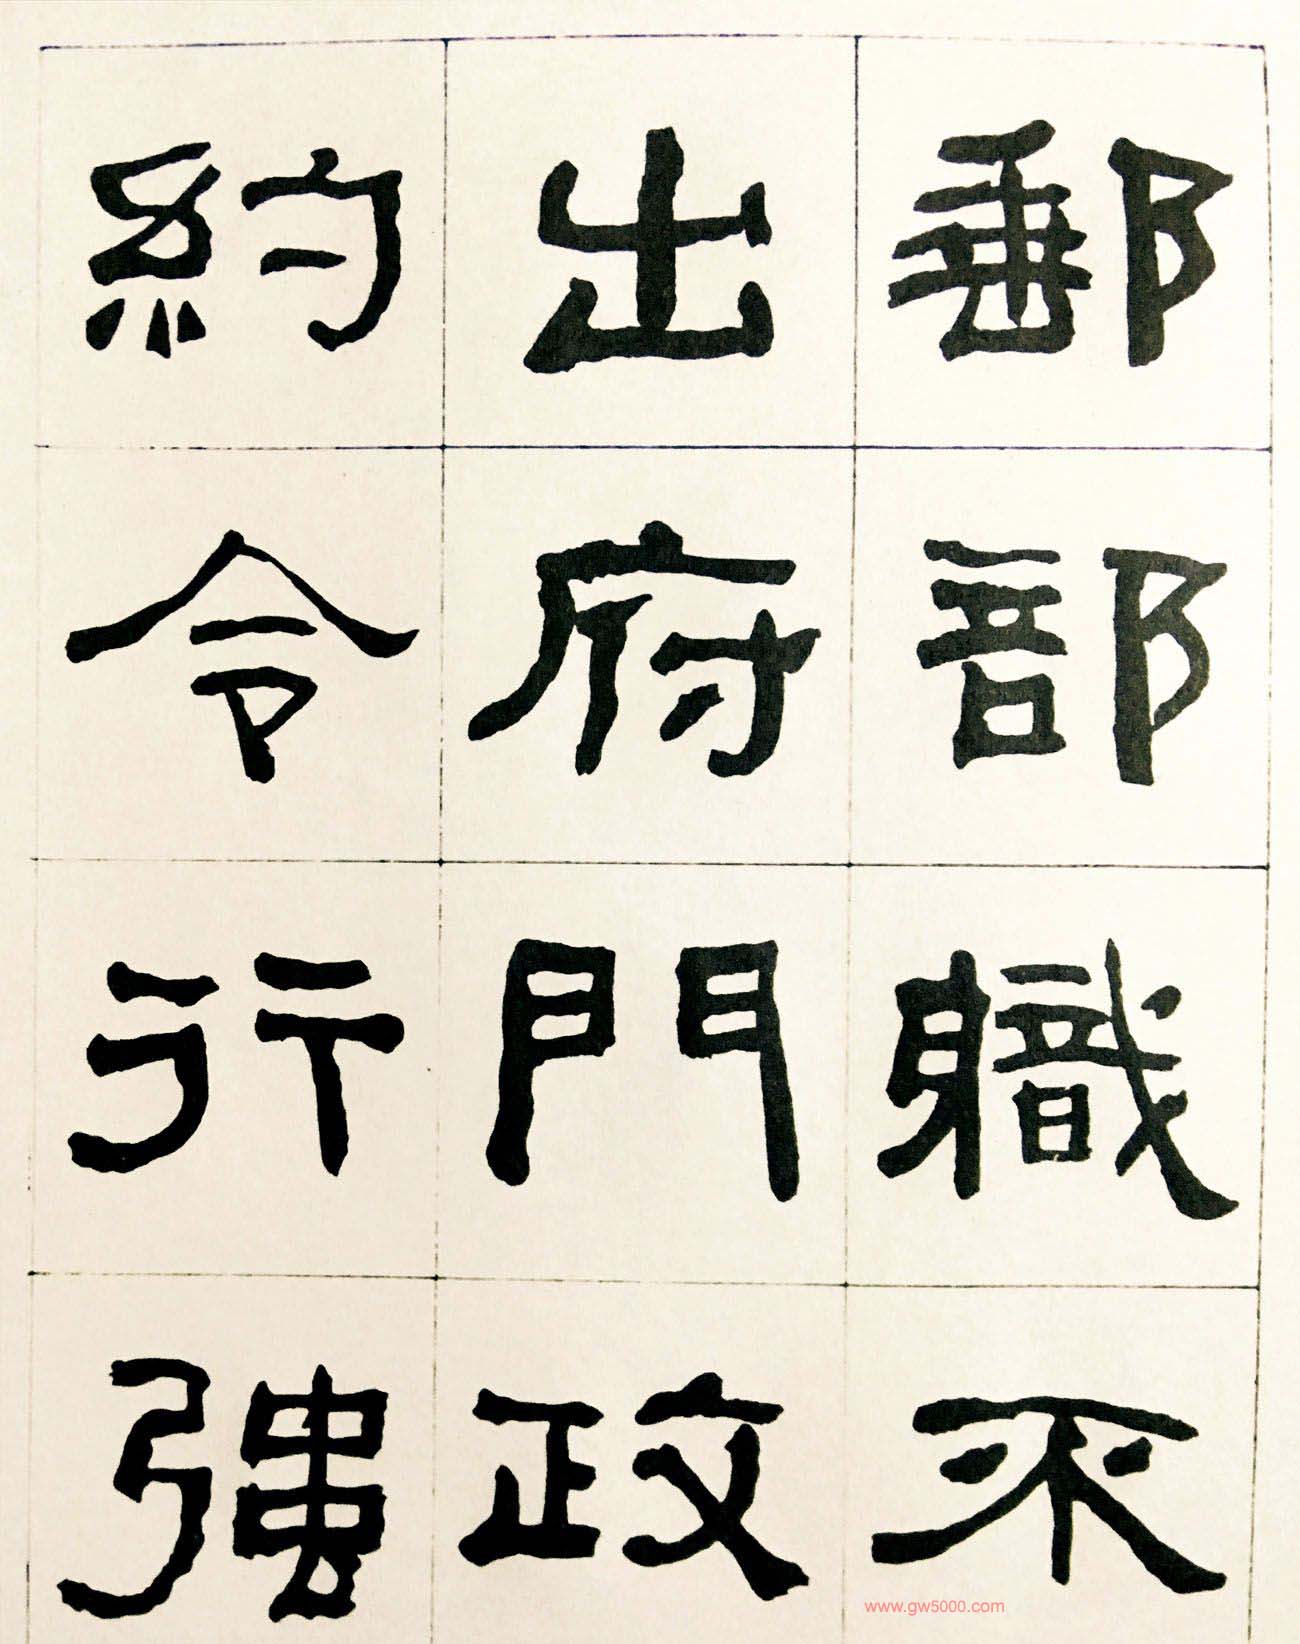 郵部職不
出府門政
約令行強
www.gw5000.com